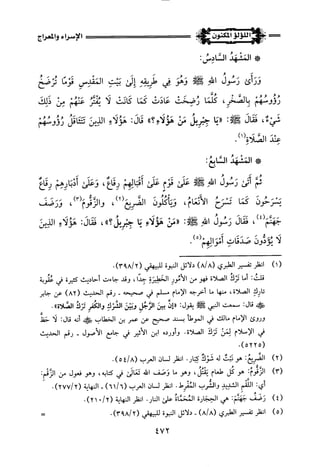 الإسراء والمعراج
اللؤلؤ المكنون
* المَشْهَدُ السَّادِسُ:
وَرَأَى رَسُولُ اللهِ ﷺ وَهُوَ فِي طَرِيقِهِ إِلَى بَيْتِ المَقْدِسِ قَوْمًا تُرْضَخُ
رُؤُوسُهُمْ بِالصَّخْرِ، كُلَّمَا رُضِخَتْ عَادَتْ كَمَا كَانَتْ لَا يُفَتَّرُ عَنْهُمْ مِنْ ذَلِكَ
شَيْءٌ، فَقَالَ ﷺ: «يَا جِبْرِيلُ مَنْ هَؤُلَاءِ؟» قَالَ: هَؤُلَاءِ الذِينَ تَتَثَاقَلُ رُؤُوسُهُمْ
عِنْدَ الصَّلَاةِ(١).
* المَشْهَدُ السَّابِعُ:
ثُمَّ أَتَى رَسُولُ اللهِ ﷺ عَلَى قَوْمٍ عَلَى أَقْبَالِهِمْ رِقَاعٌ، وَعَلَى أَدْبَارِهِمْ رِقَاعٌ
يَسْرَحُونَ كَمَا تَسْرَحُ الأَنْعَامُ، وَيَأْكُلُونَ الضَّرِيعَ(٢)، وَالزَّقُّومَ(٣)، وَرَضْفَ
جَهَنَّمَ(٤)، فَقَالَ رَسُولُ اللهِ ﷺ: «مَنْ هَؤُلَاءِ يَا جِبْرِيلُ؟»، فَقَالَ: هَؤُلَاءِ الذِينَ
لَا يُؤَدُّونَ صَدَقَاتِ أَمْوَالِهِمْ(٥).
(١) انظر تفسير الطبري (٨/٨) دلائل النبوة للبيهقي (٣٩٨/٢).
قلتُ: أما تَرْكُ الصلاة فهو من الأمُورِ الخَطِيرَةِ جِدًّا، وقد جاءت أحاديث كثيرة في عُقُوبة
تَارِكِ الصلاة، منها ما أخرجه الإمام مسلم في صحيحه - رقم الحديث (٨٢) عن جابر
ﷺ قال: سمعت النبي ﷺ يقول: «إنَّ بَيْنَ الرَّجُلِ وبَيْنَ الشِّرْكِ والكُفْرِ تَرْكَ الصَّلَاةِ».
وروى الإمام مالك في الموطأ بسند صحيح عن عمر بن الخطاب ﷺ أنه قال: لَا حَظَّ
في الإسلامِ لِمَنْ تَرَكَ الصلاة. وأورده ابن الأثير في جامع الأصول - رقم الحديث
(٥٢٢٥).
(٢) الضَّرِيعُ: هو نَبْتٌ له شَوْكٌ كِبَار. انظر لسان العرب (٥٤/٨).
(٣) الزَّقُّومُ: هو كُل طعام يَقْتُلُ، وهو ما وَصَفَ الله تَعَالَى في كتابه، وهو فعول من الزَّقْمِ:
أي: اللَّقْمِ الشديد والشُّربِ المُفْرِط. انظر لسان العرب (٦١/٦) - النهاية (٢٧٧/٢).
(٤) رَضْفُ جَهَنَّم: هي الحِجَارة المُحَمَّاةُ على النار. انظر النهاية (٢١٠/٢).
(٥) انظر تفسير الطبري (٨/٨) - دلائل النبوة للبيهقي (٣٩٨/٢).
=
٤٧٢